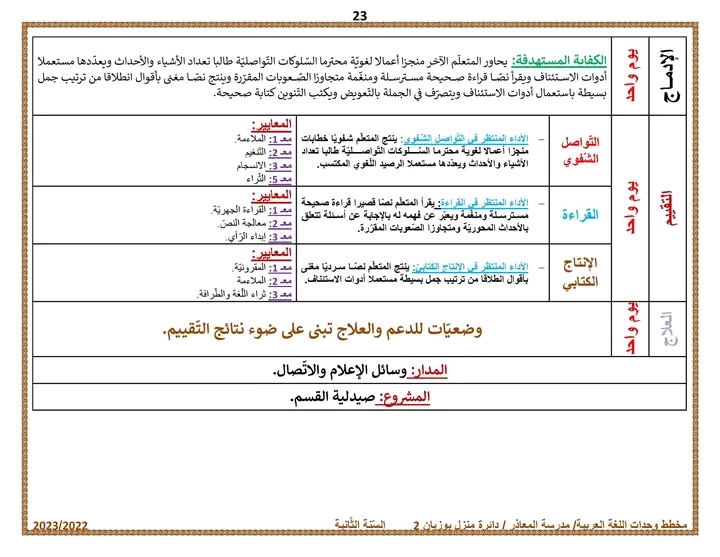 23
الإدماج
يوم واحد
الكفاية المستهدفة: يحاور المتعلّم الآخر منجزا أعمالا لغويّة محترما السّلوكات التّواصليّة طالبا تعداد الأشياء والأحداث ويعدّدها مستعملا
أدوات الاستئناف ويقرأ نصّا قراءة صحيحة مسترسلة ومنغّمة متجاوزا الصّعوبات المقرّرة وينتج نصّا مغنى بأقوال انطلاقا من ترتيب جمل
بسيطة باستعمال أدوات الاستئناف ويتصرّف في الجملة بالتّعويض ويكتب التّنوين كتابة صحيحة.
التّقييم
يوم واحد
التّواصل
الشّفوي
– الأداء المنتظر في التّواصل الشّفوي: ينتج المتعلّم شفويّا خطابات
منجزا أعمالا لغوية محترما السّلوكات التّواصليّة طالبا تعداد
الأشياء والأحداث ويعدّدها مستعملا الرصيد اللّغوي المكتسب.
المعايير:
معـ 1: الملاءمة.
معـ 2: التّنغيم
معـ 3: الانسجام
معـ 5: الثّراء
القراءة
– الأداء المنتظر في القراءة: يقرأ المتعلم نصّا قصيرا قراءة صحيحة
مسترسلة ومنغّمة ويعبّر عن فهمه له بالإجابة عن أسئلة تتعلق
بالأحداث المحوريّة ومتجاوزا الصّعوبات المقرّرة.
المعايير:
معـ 1: القراءة الجهريّة.
معـ 2: معالجة النص.
معـ 3: إبداء الرّأي.
الإنتاج
الكتابي
– الأداء المنتظر في الإنتاج الكتابيّ: ينتج المتعلم نصّا سرديّا مغنى
بأقوال انطلاقا من ترتيب جمل بسيطة مستعملا أدوات الاستئناف.
المعايير:
معـ 1: المقروئيّة.
معـ 2: الملاءمة
معـ 3: ثراء اللّغة والطّرافة.
العلاج
يوم واحد
وضعيّات للدعم والعلاج تبنى على ضوء نتائج التّقييم.
المدار: وسائل الإعلام والاتّصال.
المشروع: صيدلية القسم.
مخطط وحدات اللغة العربية/ مدرسة المعاذر / دائرة منزل بوزيان 2 السّنة الثّانية 2023/2022